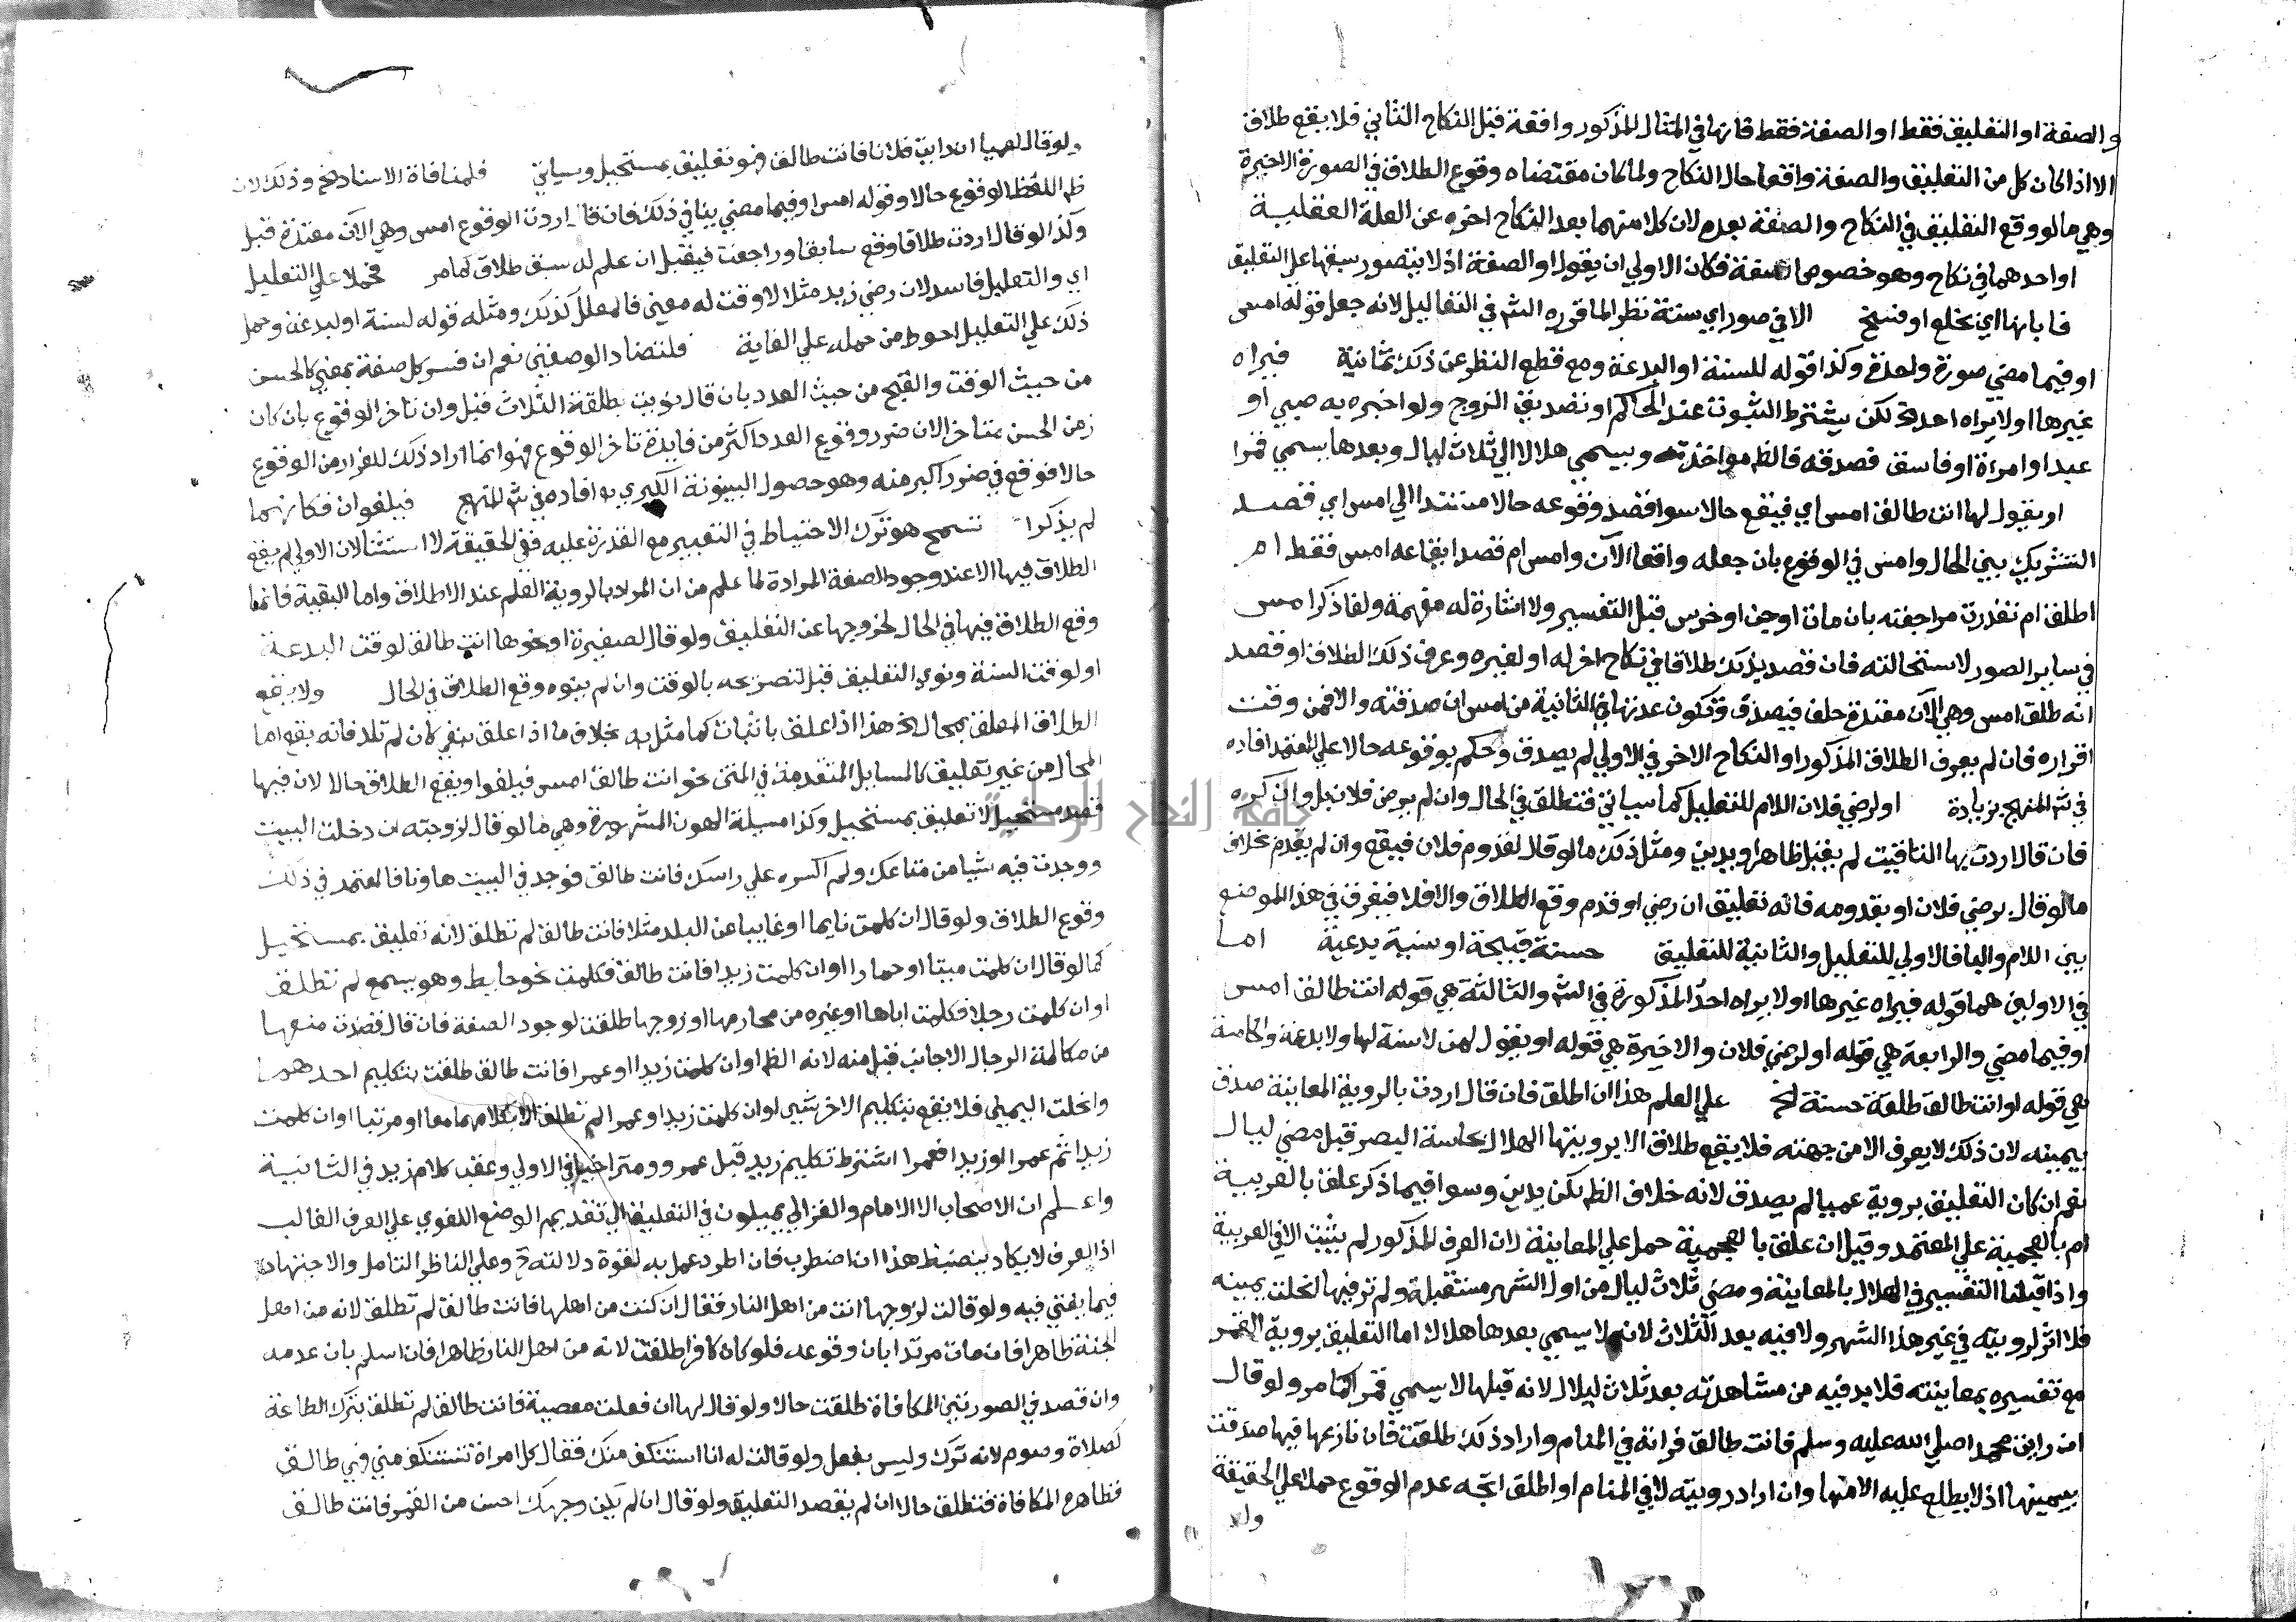 والصفة او التعليق فقط او الصفة فقط فانها في المثال المذكور واقعة قبل النكاح الثاني فلا يقع طلاق
الا اذا كان كل من التعليق والصفة واقعا حال النكاح ولما كان مقتضاه وقوع الطلاق في الصورة الاخيرة
وهي ما لو وقع التعليق في النكاح والصفة بعده لان كلا منهما بعد النكاح اخره عن العلة العقلية
او احدهما في نكاح وهو خصوص الصفة فكان الاولي ان يقول او الصفة اذ لا يتصور سبقها على التعليق
فابانها اي بخلع او فسخ الا في صور اي ستة نظرا لما قرره الش في التعاليل لانه جعل قوله امس
او فيما مضي صورة واحدة وكذا قوله للسنة او البدعة ومع قطع النظر عن ذلك ثمانية فيراه
غيرها او لا يراه احد الخ لكن يشترط الثبوت عند الحاكم او تصديق الزوج ولو اخبره به صبي او
عبد او امراة او فاسق فصدقه فالظ مواخذته ويسمي هلالا الي ثلاث ليال وبعدها يسمي قمرا
او يقول لها انت طالق امس اي فيقع حالا سوا قصد وقوعه حالا مستندا الي امس اي قصد
التشريك بين الحال وامس في الوقوع بان جعله واقعا الآن وامس ام قصد ايقاعه امس فقط ام
اطلق ام تعذرت مراجعته بان مات او جن او خرس قبل التفسير ولا اشارة له مفهمة ولغا ذكر امس
في ساير الصور لاستحالته فان قصد بذلك طلاقا في نكاح اخر له او لغيره وعرف ذلك الطلاق او قصد
انه طلق امس وهي الآن معتدة حلف فيصدق وتكون عدتها في الثانية من امس ان صدقته والا فمن وقت
اقراره فان لم يعرف الطلاق المذكور او النكاح الاخر في الاولي لم يصدق وحكم بوقوعه حالا علي المعتمد افاده
في ش المنهج بزيادة او لرضي فلان اللام للتعليل كما سياتي فتطلق في الحال وان لم يرض فلان بل وان كره
فان قال اردت بها التاقيت لم يقبل ظاهرا ويدين ومثل ذلك ما لو قال لقدوم فلان فيقع وان لم يقدم بخلاف
ما لو قال برضي فلان او بقدومه فانه تعليق ان رضي او قدم وقع الطلاق والا فلا فيفرق في هذا الموضع
بين اللام والبا فالاولي للتعليل والثانية للتعليق حسنة قبيحة او سنية بدعية اما
في الاوليين هما قوله فيراه غيرها او لا يراه احد المذكورة في الش والثالثة هي قوله انت طالق امس
او فيما مضي والرابعة هي قوله او لرضي فلان والاخيرة هي قوله او يقول لمن لا سنة لها ولا بدعة والخامسة
هي قوله او انت طالق طلقة حسنة الخ علي العلم هذا ان اطلق فان قال اردت بالروية المعاينة صدق
بيمينه لان ذلك لا يعرف الا من جهته فلا يقع طلاق الا برويتها الهلال بحاسة البصر قبل مضي ليال
نعم ان كان التعليق بروية عميا لم يصدق لانه خلاف الظ لكن يدين وسوا فيما ذكر علق بالعربية
ام بالعجمية علي المعتمد وقيل ان علق بالعجمية حمل علي المعاينة لان العرف المذكور لم يثبت الا في العربية
واذا قبلنا التفسير في الهلال بالمعاينة ومضي ثلاث ليال من اول الشهر مستقبلة ولم تر فيها انحلت يمينه
فلا اثر لرويته في غير هذا الشهر ولا فيه بعد الثلاث لانه لا يسمي بعدها هلالا اما التعليق بروية القمر
مع تفسيره بمعاينته فلا بد فيه من مشاهدته بعد ثلاث ليال لانه قبلها لا يسمي قمرا كما مر ولو قال
ان رايت محمدا صلي الله عليه وسلم فانت طالق فراته في المنام واراد ذلك طلقت فان نازعها فيها صدقت
بيمينها اذ لا يطلع عليه الا منها وان اراد رويته لا في المنام او اطلق اتجه عدم الوقوع حملا علي الحقيقة
ولو
ولو قال لعميا ان رايت فلانا فانت طالق فهو تعليق بمستحيل وسياتي فلمنافاة الاسناد الخ وذلك لان
ظ اللفظ الوقوع حالا وقوله امس او فيما مضي ينافي ذلك فان قال اردت الوقوع امس وهي الآن معتدة قبل
وكذا لو قال اردت طلاقا وقع سابقا وراجعت فيقبل ان علم له سبق طلاق كما مر فحملا علي التعليل
اي والتعليل فاسد لان رضي زيد مثلا لا وقت له معين فالمعلل كذلك ومثله قوله لسنة او لبدعة وحمل
ذلك علي التعليل احوط من حمله علي الغاية فلتضاد الوصفين نعم ان فسر كل صفة بمعني كالحسن
من حيث الوقت والقبح من حيث العدد بان قال نويت بطلقة الثلاث قبل وان تاخر الوقوع بان كان
زمن الحسن متاخرا لان ضرر وقوع العدد اكثر من فايدة تاخر الوقوع فهو انما اراد ذلك للفرار من الوقوع
حالا فوقع في ضرر اكبر منه وهو حصول البينونة الكبري به افاده في ش المنهج فيلغوان فكانهما
لم يذكرا تسمح هو ترك الاحتياط في التعبير مع القدرة عليه ففي الحقيقة لا استثنا لان الاولي لم يقع
الطلاق فيها الا عند وجود الصفة المرادة لما علم من ان المراد بالروية العلم عند الاطلاق واما البقية فانما
وقع الطلاق فيها في الحال لخروجها عن التعليق ولو قال لصغيرة او نحوها انت طالق لوقت البدعة
او لوقت السنة ونوي التعليق قبل لتصريحه بالوقت وان لم ينوه وقع الطلاق في الحال ولا يقع
الطلاق المعلق بمحال الخ هذا اذا علق باثبات كما مثل به بخلاف ما اذا علق بنفي كان لم تلد فانه يقع اما
المحال من غير تعليق كالمسايل المتقدمة في المتن نحو انت طالق امس فيلغو ويقع الطلاق حالا لان فيها
قصد مستحيل لا تعليق بمستحيل وكذا مسيلة الهون المشهورة وهي ما لو قال لزوجته ان دخلت البيت
ووجدت فيه شيا من متاعك ولم اكسره علي راسك فانت طالق فوجد في البيت هاونا فالمعتمد في ذلك
وقوع الطلاق ولو قال ان كلمت نايما او غايبا عن البلد مثلا فانت طالق لم تطلق لانه تعليق بمستحيل
كما لو قال ان كلمت ميتا او حمارا او ان كلمت زيدا فانت طالق فكلمت نحو حايط وهو يسمع لم تطلق
او ان كلمت رجلا فكلمت اباها او غيره من محارمها او زوجها طلقت لوجود الصفة فان قال قصدت منعها
من مكالمة الرجال الاجانب قبل منه لانه الظ او ان كلمت زيدا او عمرا فانت طالق طلقت بتكليم احدهما
وانحلت اليمين فلا يقع بتكليم الاخر شي او ان كلمت زيدا وعمرا لم تطلق الا بكلامهما معا او مرتبا او ان كلمت
زيدا ثم عمرا او زيدا فعمرا اشترط تكليم زيد قبل عمرو ومتراخيا في الاولي وعقب كلام زيد في الثانية
واعلم ان الاصحاب الا الامام والغزالي يميلون في التعليق الي تقديم الوضع اللغوي علي العرف الغالب
اذ العرف لا يكاد ينضبط هذا ان اضطرب فان اطرد عمل به لقوة دلالته ح وعلي الناظر التامل والاجتهاد
فيما يفتي فيه ولو قالت لزوجها انت من اهل النار فقال ان كنت من اهلها فانت طالق لم تطلق لانه من اهل
الجنة ظاهرا فان مات مرتدا بان وقوعه فلو كان كافرا طلقت لانه من اهل النار ظاهرا فان اسلم بان عدمه
وان قصد في الصورتين المكافاة طلقت حالا ولو قال لها ان فعلت معصية فانت طالق لم تطلق بترك الطاعة
كصلاة وصوم لانه ترك وليس بفعل ولو قالت له انا استنكف منك فقال كل امراة تستنكف مني فهي طالق
فظاهره المكافاة فتطلق حالا ان لم يقصد التعليق ولو قال ان لم يكن وجهك احسن من القمر فانت طالق
جامعة النجاح الوطنية